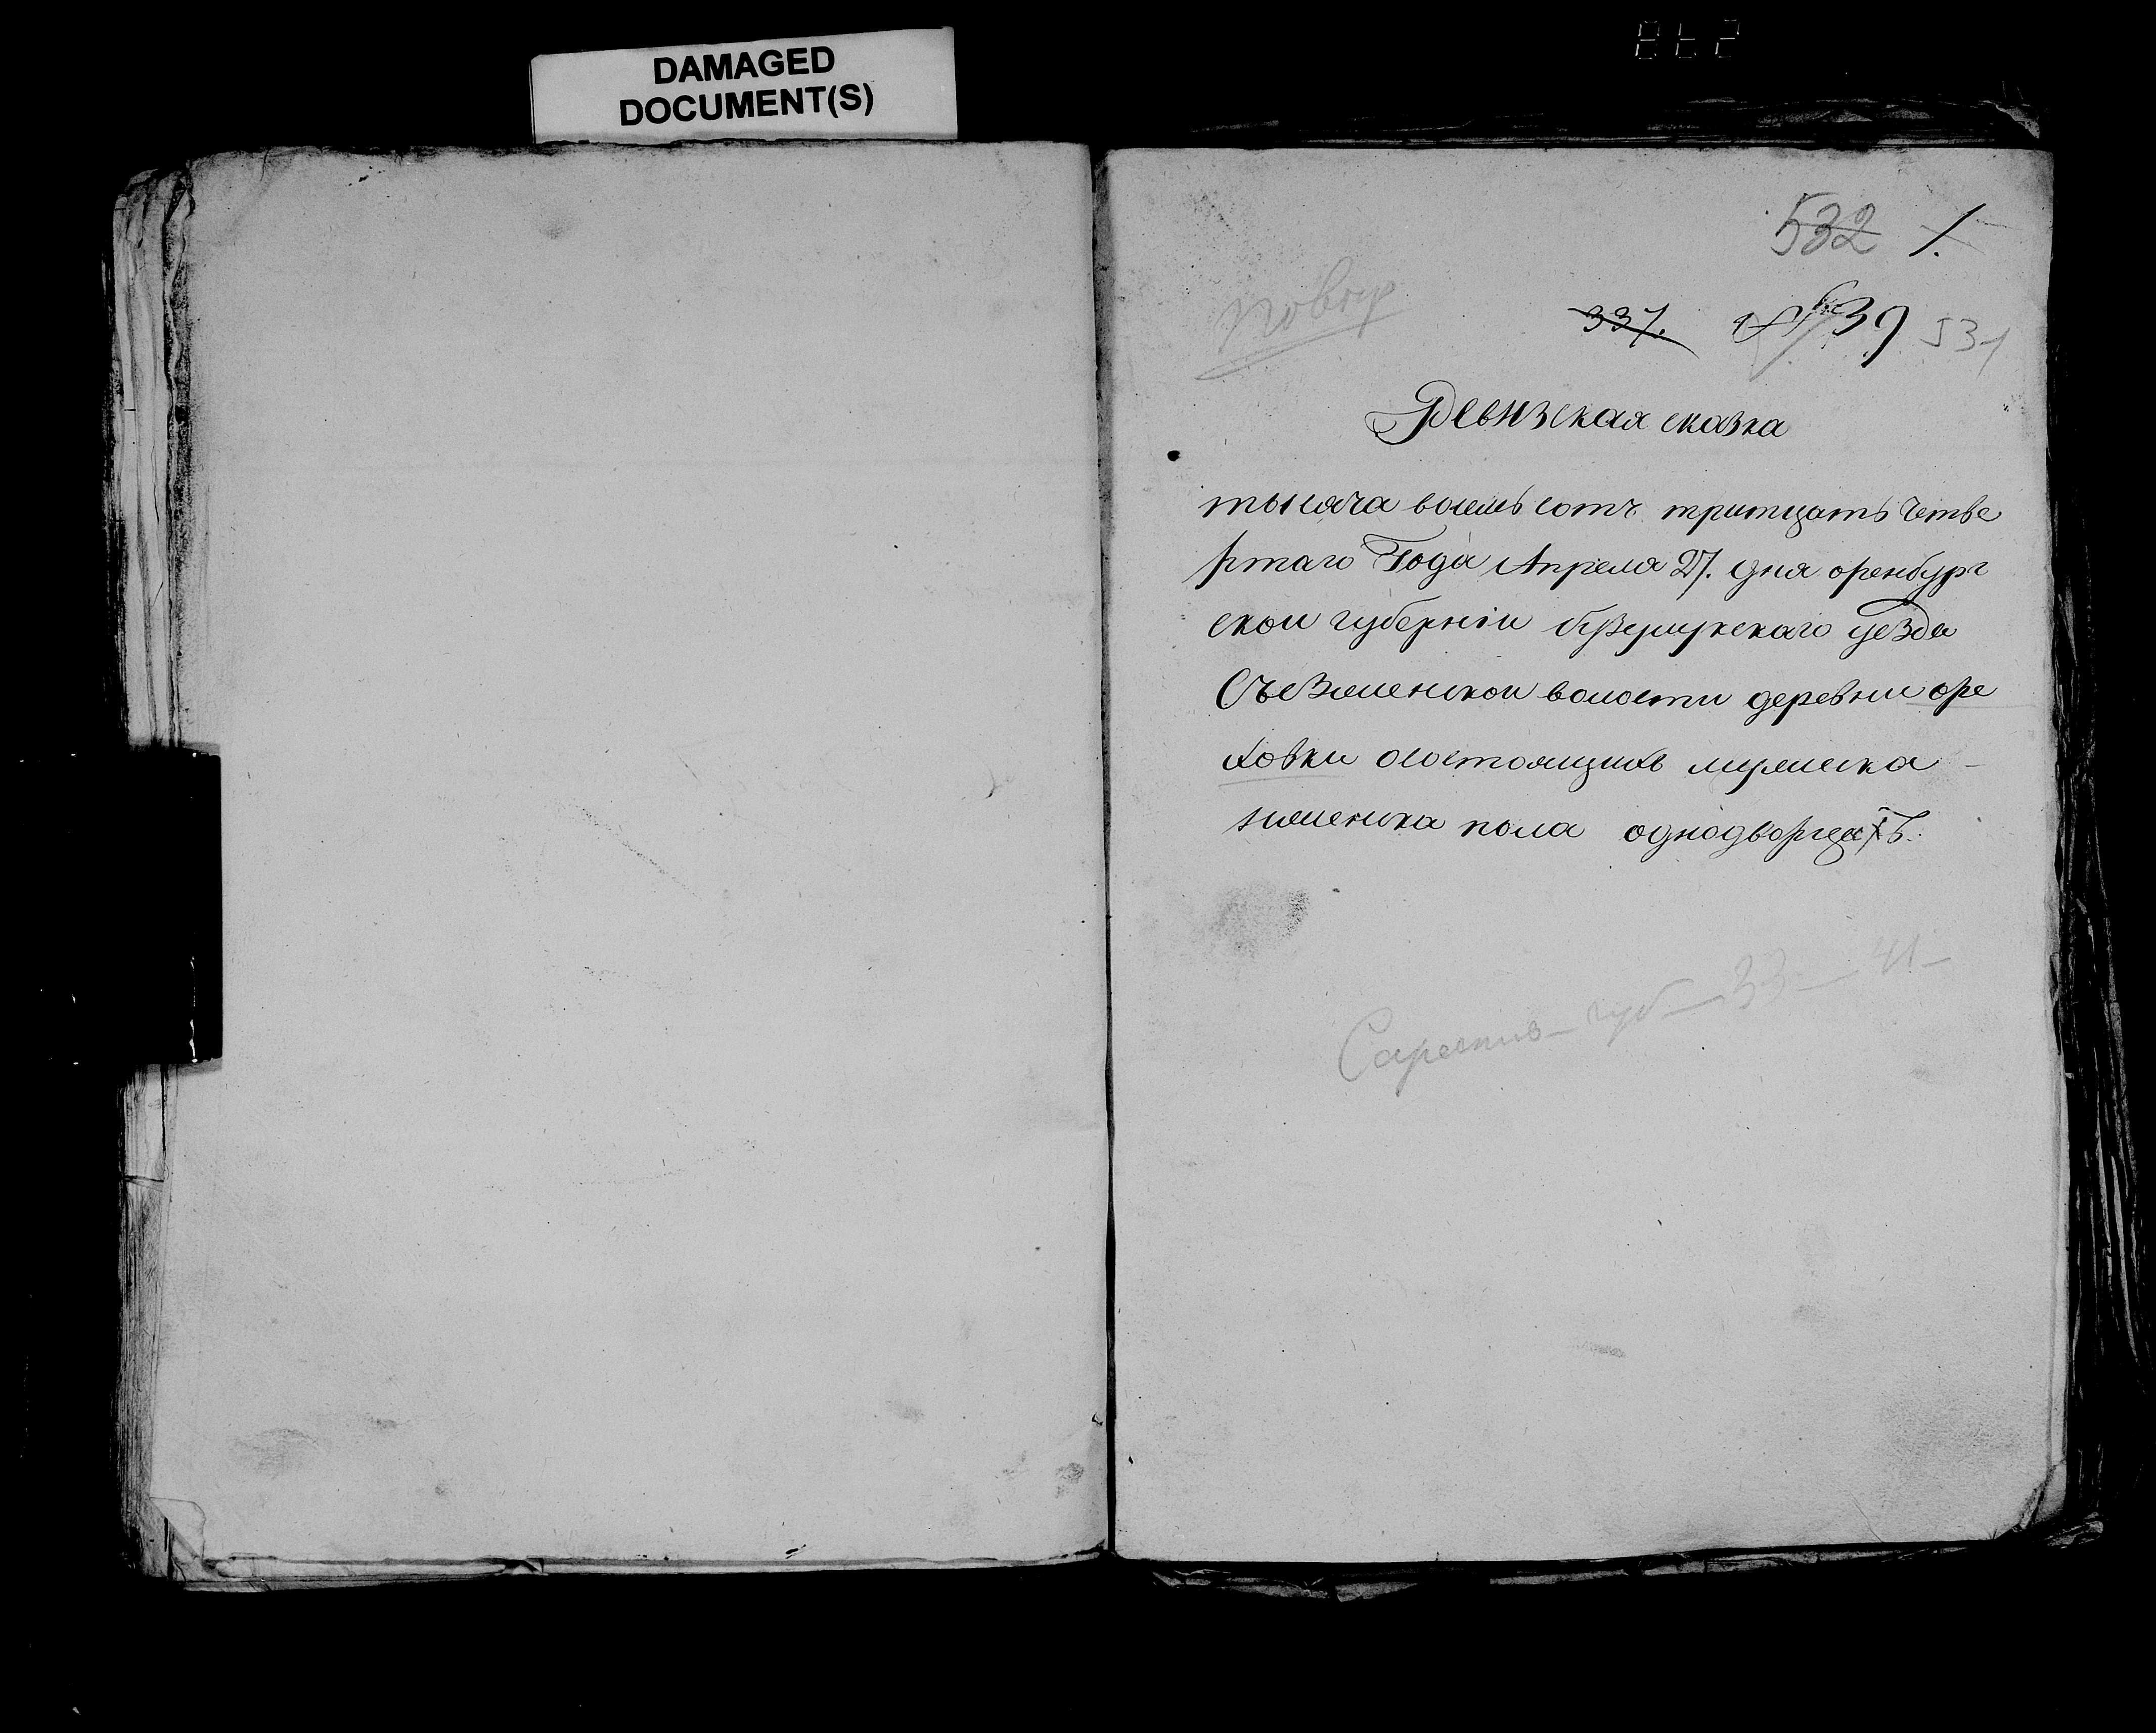 DAMAGED
DOCUMENT(S)
532 1.
повтр
337. № 39 531
Ревизская сказка
тысяча восемь сотъ тритцать четве
ртаго Года Апреля 27. дня оренбург
скои губерніи бузулукскаго уезда
Съезженскои волости деревни оре
ховки осостоящихъ мужеска
иженска пола однодворцахъ.
губ 33 41